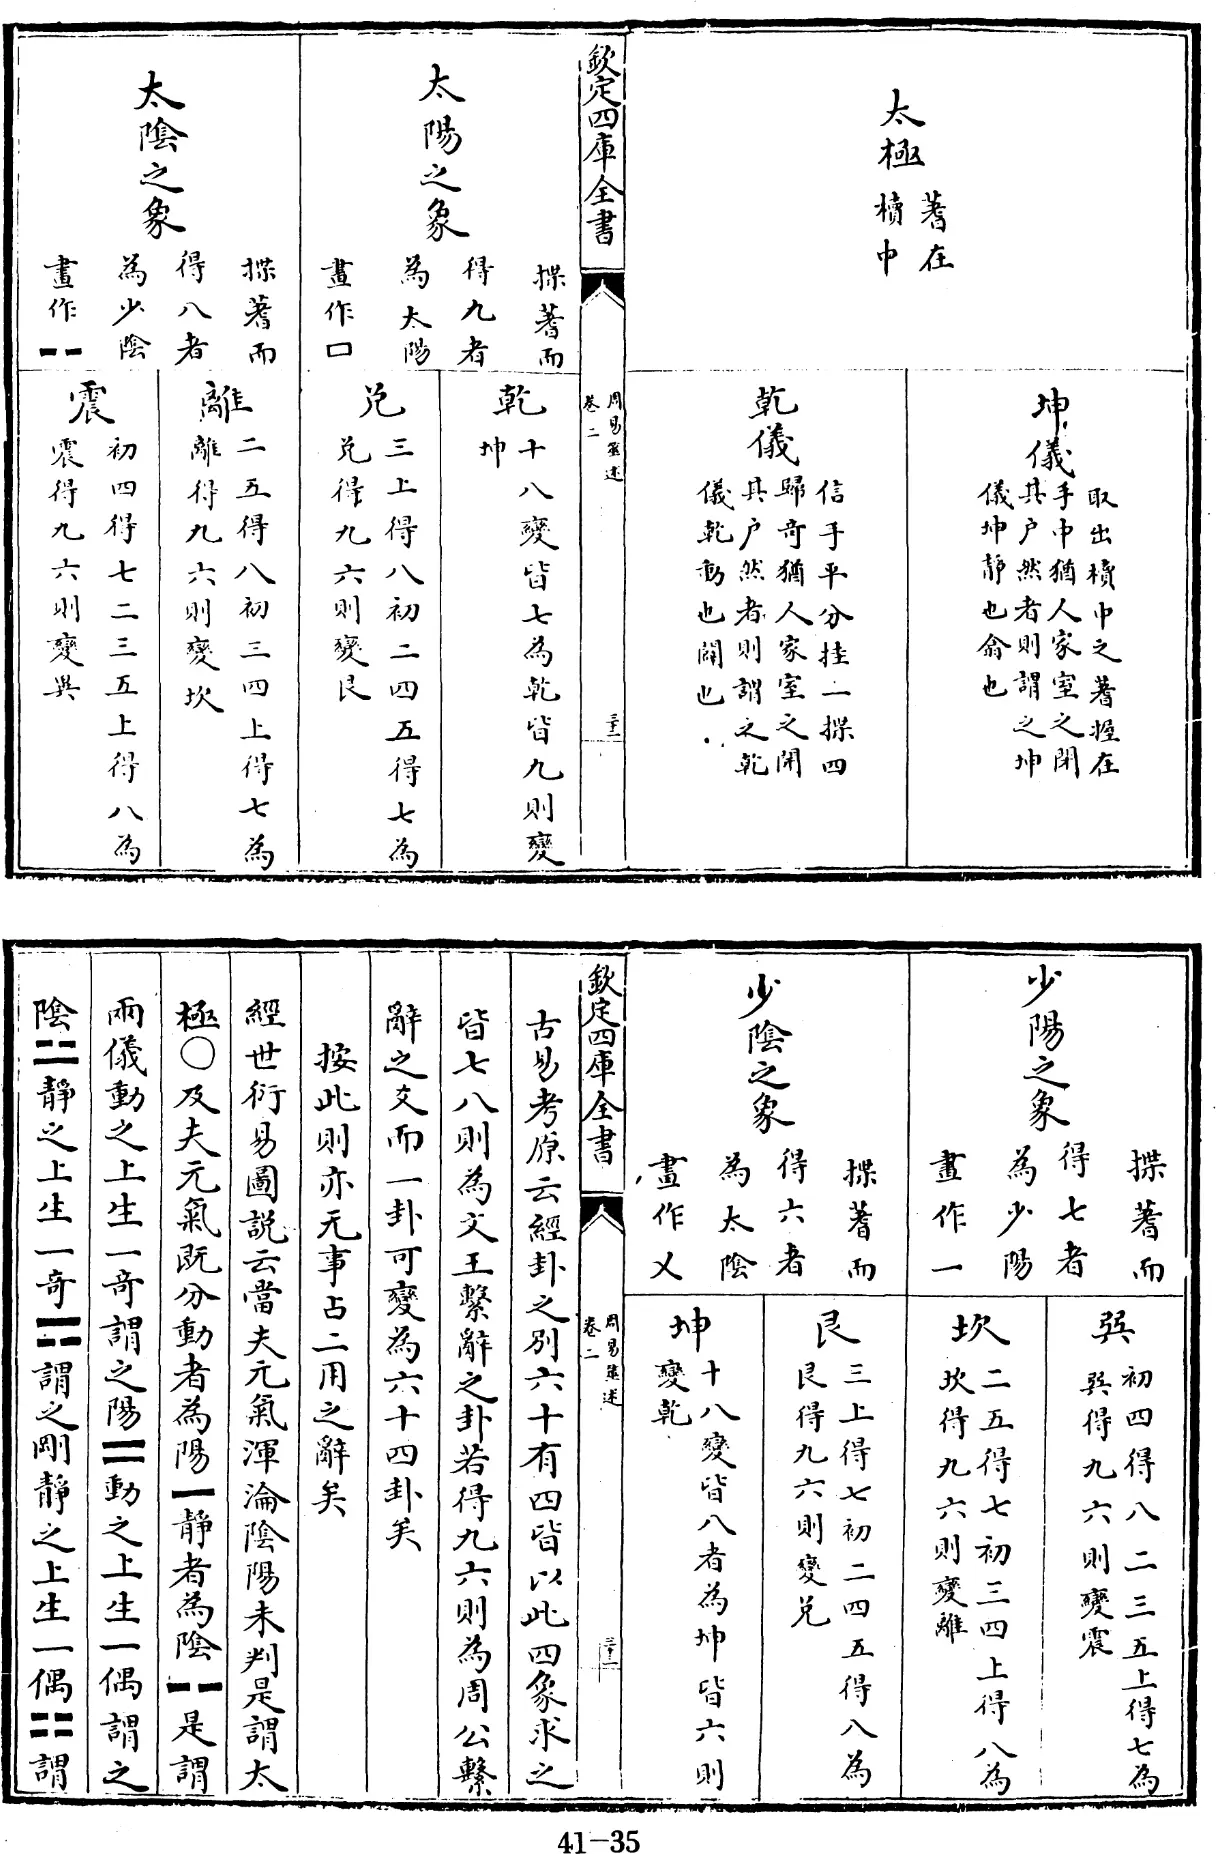 太極
蓍在
櫝中
坤儀
取出櫝中之蓍握在
手中猶人家室之閉
其户然者則謂之坤
儀坤静也翕也
乾儀
信手平分挂一揲四
歸奇猶人家室之開
其户然者則謂之乾
儀乾動也闢也
欽定四庫全書
周易筮述
卷二
太陽之象
揲蓍而
得九者
為太陽
畫作□
乾
十八變皆七為乾皆九則變
坤
兌
三上得八初二四五得七為
兌得九六則變艮
太陰之象
揲蓍而
得八者
為少陰
畫作⚋
離
二五得八初三四上得七為
離得九六則變坎
震
初四得七二三五上得八為
震得九六則變巽
少陽之象
揲蓍而
得七者
為少陽
畫作一
巽
初四得八二三五上得七為
巽得九六則變震
坎
二五得七初三四上得八為
坎得九六則變離
少陰之象
揲蓍而
得六者
為太陰
畫作乂
艮
三上得七初二四五得八為
艮得九六則變兌
坤
十八變皆八者為坤皆六則
變乾
欽定四庫全書
周易筮述
卷二
古易考原云經卦之别六十有四皆以此四象求之
皆七八則為文王繫辭之卦若得九六則為周公繫
辭之爻而一卦可變為六十四卦矣
按此則亦无事占二用之辭矣
經世衍易圖説云當夫元氣渾淪陰陽未判是謂太
極〇及夫元氣既分動者為陽⚊静者為陰⚋是謂
兩儀動之上生一奇謂之陽⚌動之上生一偶謂之
陰⚍静之上生一奇⚎謂之剛静之上生一偶⚏謂
41-35